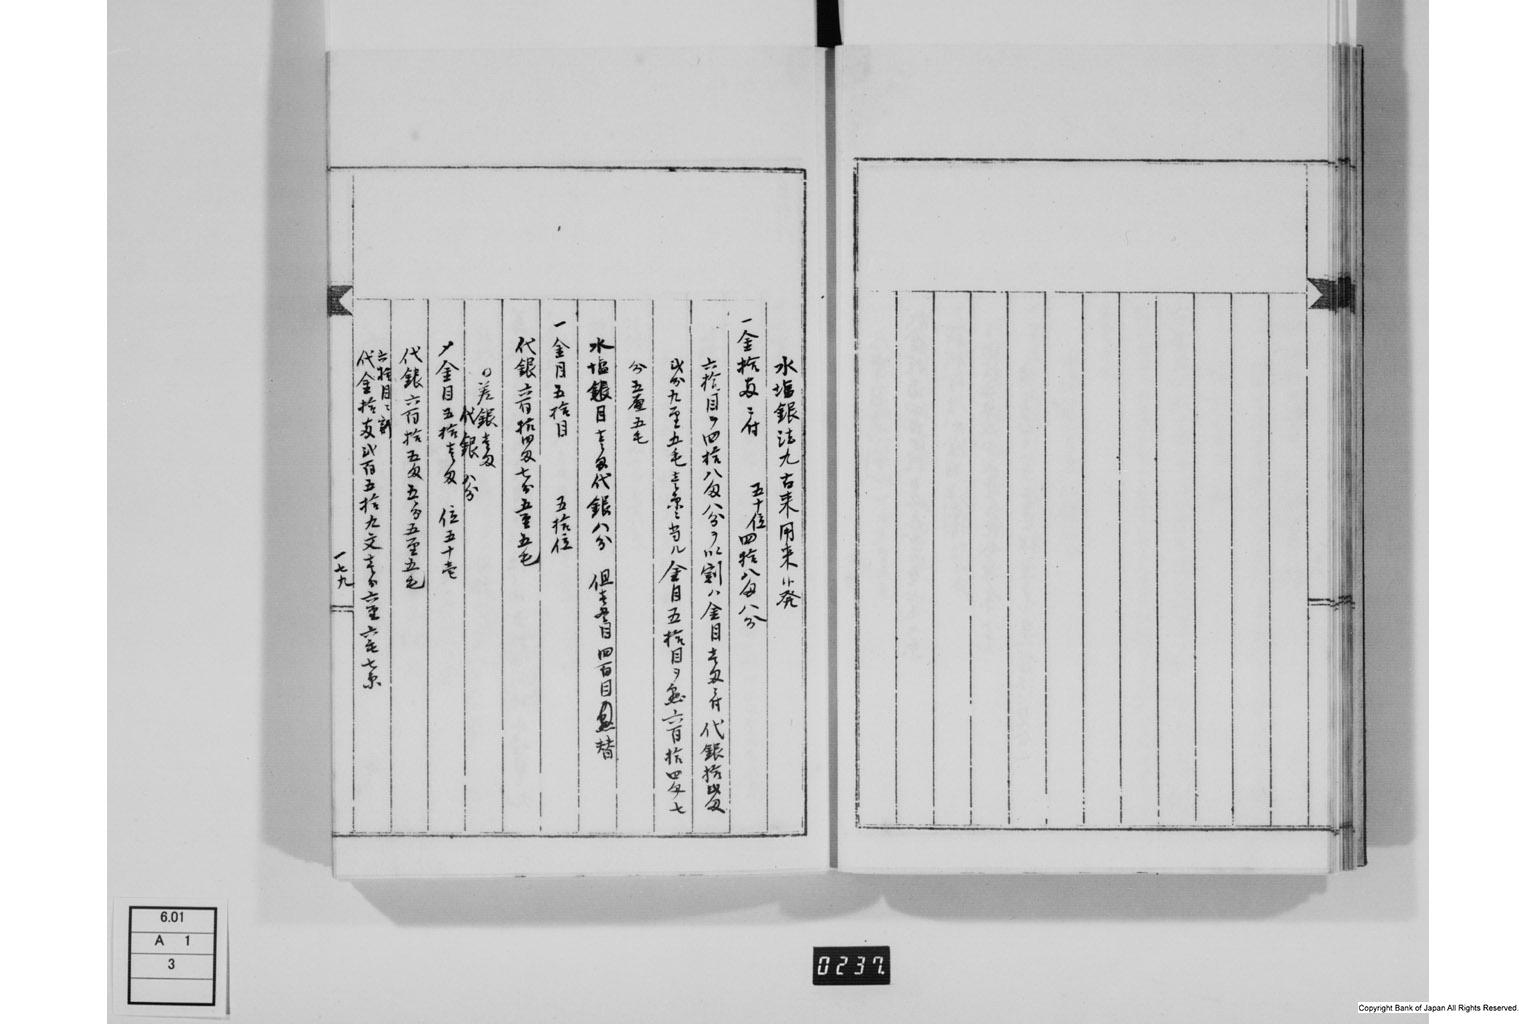 水塩銀法九古来用来ㇵ発
一金拾両ニ付 五十位四拾八匁八分
六拾目ヲ四拾八匁八分ヲ以割ハ金目壱匁ニ付代銀拾弐匁
弐分九厘五毛壱糸ニ当ル金目五拾目ヲ懸六百拾四匁七
分五厘五毛
水塩銀目壱匁代銀八分 但壱貫目四百目懸替
一金目五拾目 五拾位
代銀六百拾四匁七分五厘五毛
差銀壱匁
代銀八分
〆金目五拾壱匁 位五十壱
代銀六百拾五匁五分五厘五毛
六拾目ニ割
代金拾両弐百五拾九文壱分六厘六毛七糸
一七九
6.01
A 1
3
0237.
Copyright Bank of Japan All Rights Reserved.